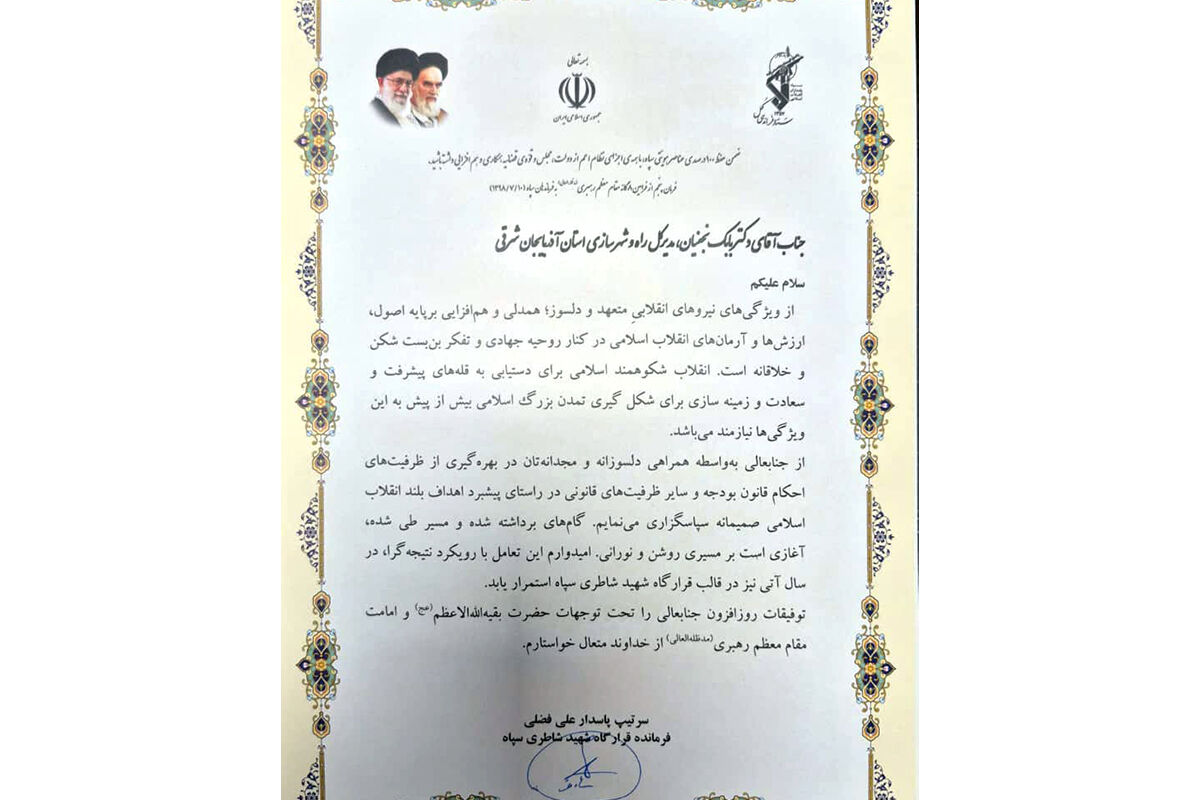 بسمه تعالی
جمهوری اسلامی ایران
ضمن حفظ ۱۰۰درصدی عناصر هویتی سپاه، با همه‌ی اجزای نظام اعم از دولت، مجلس و قوه‌ی قضائیه همکاری و هم افزایی داشته باشید.
فرمان پنجم از فرامین ۸ گانه مقام معظم رهبری به فرماندهان سپاه (۱۳۹۸/۷/۱۰)
جناب آقای دکتر بابک نجفیان، مدیرکل راه و شهرسازی استان آذربایجان شرقی
سلام علیکم
از ویژگی‌های نیروهای انقلابیِ متعهد و دلسوز؛ همدلی و هم‌افزایی برپایه اصول،
ارزش‌ها و آرمان‌های انقلاب اسلامی در کنار روحیه جهادی و تفکر بن‌بست شکن
و خلاقانه است. انقلاب شکوهمند اسلامی برای دستیابی به قله‌های پیشرفت و
سعادت و زمینه سازی برای شکل گیری تمدن بزرگ اسلامی بیش از پیش به این
ویژگی‌ها نیازمند می‌باشد.
از جنابعالی به‌واسطه همراهی دلسوزانه و مجدانه‌تان در بهره‌گیری از ظرفیت‌های
احکام قانون بودجه و سایر ظرفیت‌های قانونی در راستای پیشبرد اهداف بلند انقلاب
اسلامی صمیمانه سپاسگزاری می‌نمایم. گام‌های برداشته شده و مسیر طی شده،
آغازی است بر مسیری روشن و نورانی. امیدوارم این تعامل با رویکرد نتیجه‌گرا، در
سال آتی نیز در قالب قرارگاه شهید شاطری سپاه استمرار یابد.
توفیقات روزافزون جنابعالی را تحت توجهات حضرت بقیه‌الله‌الاعظم(عج) و امامت
مقام معظم رهبری(مدظله‌العالی) از خداوند متعال خواستارم.
سرتیپ پاسدار علی فضلی
فرمانده قرارگاه شهید شاطری سپاه